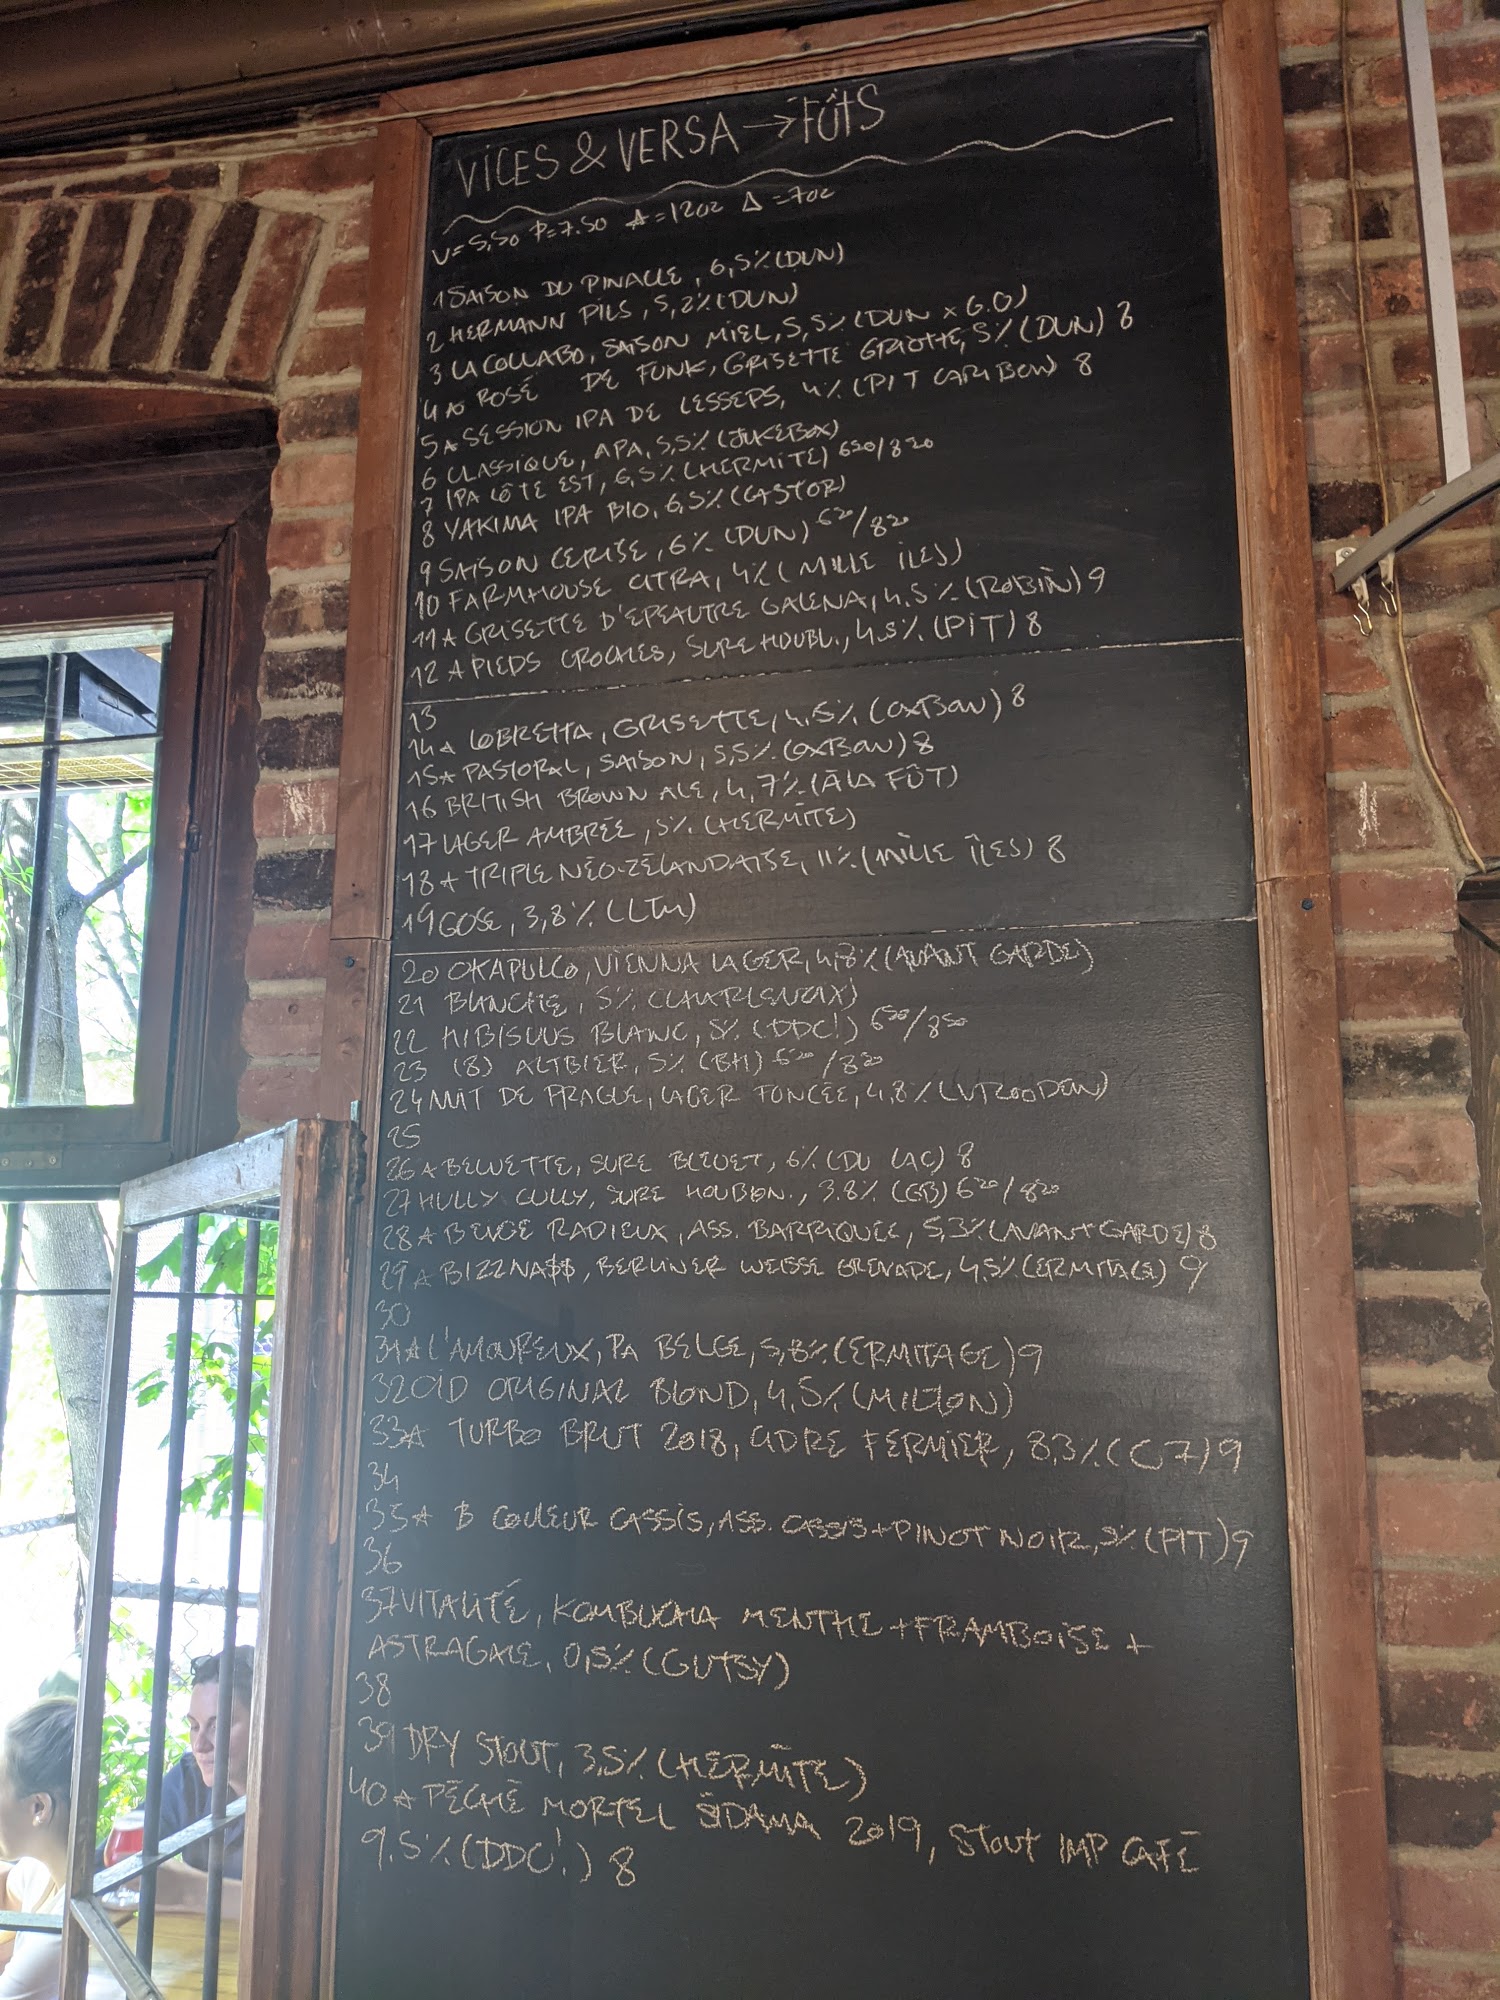 VICES & VERSA → FÛTS
V=5,50 P=7.50 ☆=12OZ Δ=7OZ
1 SAISON DU PINACLE, 6,5% (DUN)
2 HERMANN PILS, 5,2% (DUN)
3 LA COLLABO, SAISON MIEL, 5,5% (DUN x G.O)
4 ☆ ROSÉ DE FUNK, GRISETTE GRIOTTE, 5% (DUN) 8
5 ☆ SESSION IPA DE LESSEPS, 4% (PIT CARIBOU) 8
6 CLASSIQUE, APA, 5,5% (JUKEBOX)
7 IPA CÔTE EST, 6,5% (HERMITE) 620/820
8 YAKIMA IPA BIO, 6,5% (CASTOR)
9 SAISON CERISE, 6% (DUN) 620/820
10 FARMHOUSE CITRA, 4% (MILLE ÎLES)
11 ☆ GRISETTE D'ÉPEAUTRE GALENA, 4,5% (ROBIN) 9
12 ☆ PIEDS CROCHES, SURE HOUBL., 4.5% (PIT) 8
13
14 ☆ LOBRETTA, GRISETTE, 4,5% (OXBOW) 8
15 ☆ PASTORAL, SAISON, 5,5% (OXBOW) 8
16 BRITISH BROWN ALE, 4,7% (À LA FÛT)
17 LAGER AMBRÉE, 5% (HERMITE)
18 ☆ TRIPLE NÉO-ZÉLANDAISE, 11% (MILLE ÎLES) 8
19 GOSE, 3,8% (LTM)
20 OKAPULCO, VIENNA LAGER, 4,8% (AVANT GARDE)
21 BLANCHE, 5% (CHARLEVOIX)
22 HIBISCUS BLANC, 5% (DDC!) 650/850
23 (8) ALTBIER, 5% (BH) 620/820
24 NUIT DE PRAGUE, LAGER FONCÉE, 4,8% (VROODEN)
25
26 ☆ BELUETTE, SURE BLEUET, 6% (DU LAC) 8
27 HULLY GULLY, SURE HOUBLON., 3.8% (GB) 620/820
28 ☆ BELGE RADIEUX, ASS. BARRIQUÉE, 5,3% (AVANT GARDE) 8
29 ☆ BIZZNA$$, BERLINER WEISSE GRENADE, 4,5% (ERMITAGE) 9
30
31 ☆ L'AMOUREUX, PA BELGE, 5,8% (ERMITAGE) 9
32 OLD ORIGINAL BLOND, 4,5% (MILTON)
33 ☆ TURBO BRUT 2018, CIDRE FERMIER, 8,3% (C7) 9
34
35 ☆ B COULEUR CASSIS, ASS. CASSIS + PINOT NOIR, % (PIT) 9
36
37 VITALITÉ, KOMBUCHA MENTHE + FRAMBOISE +
ASTRAGALE, 0,5% (GUTSY)
38
39 DRY STOUT, 3,5% (HERMITE)
40 ☆ PÉCHÉ MORTEL SIDAMA 2019, STOUT IMP CAFÉ
9.5% (DDC!) 8